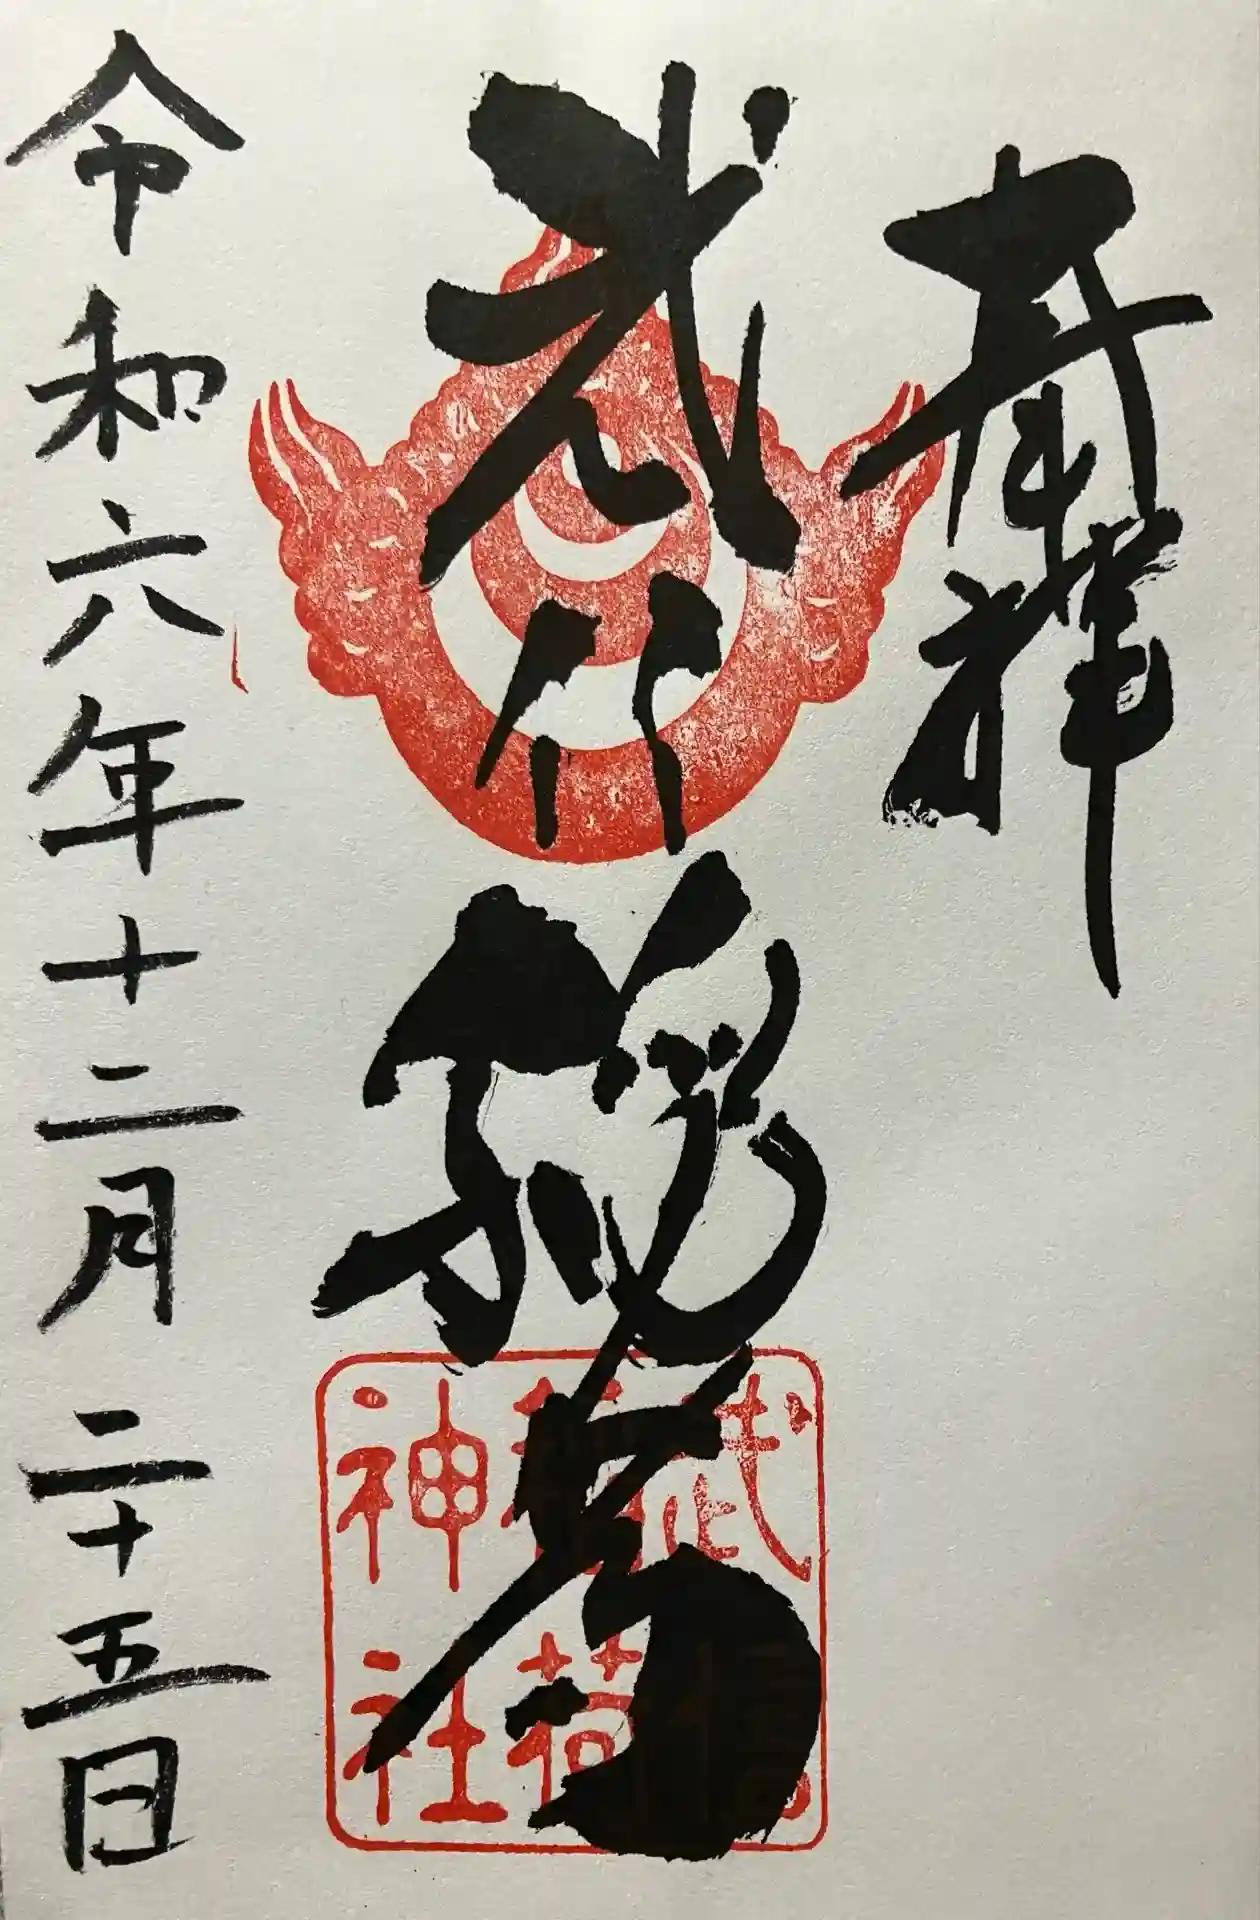 奉拝
武信稲荷
武信稲荷神社
令和六年十二月二十五日